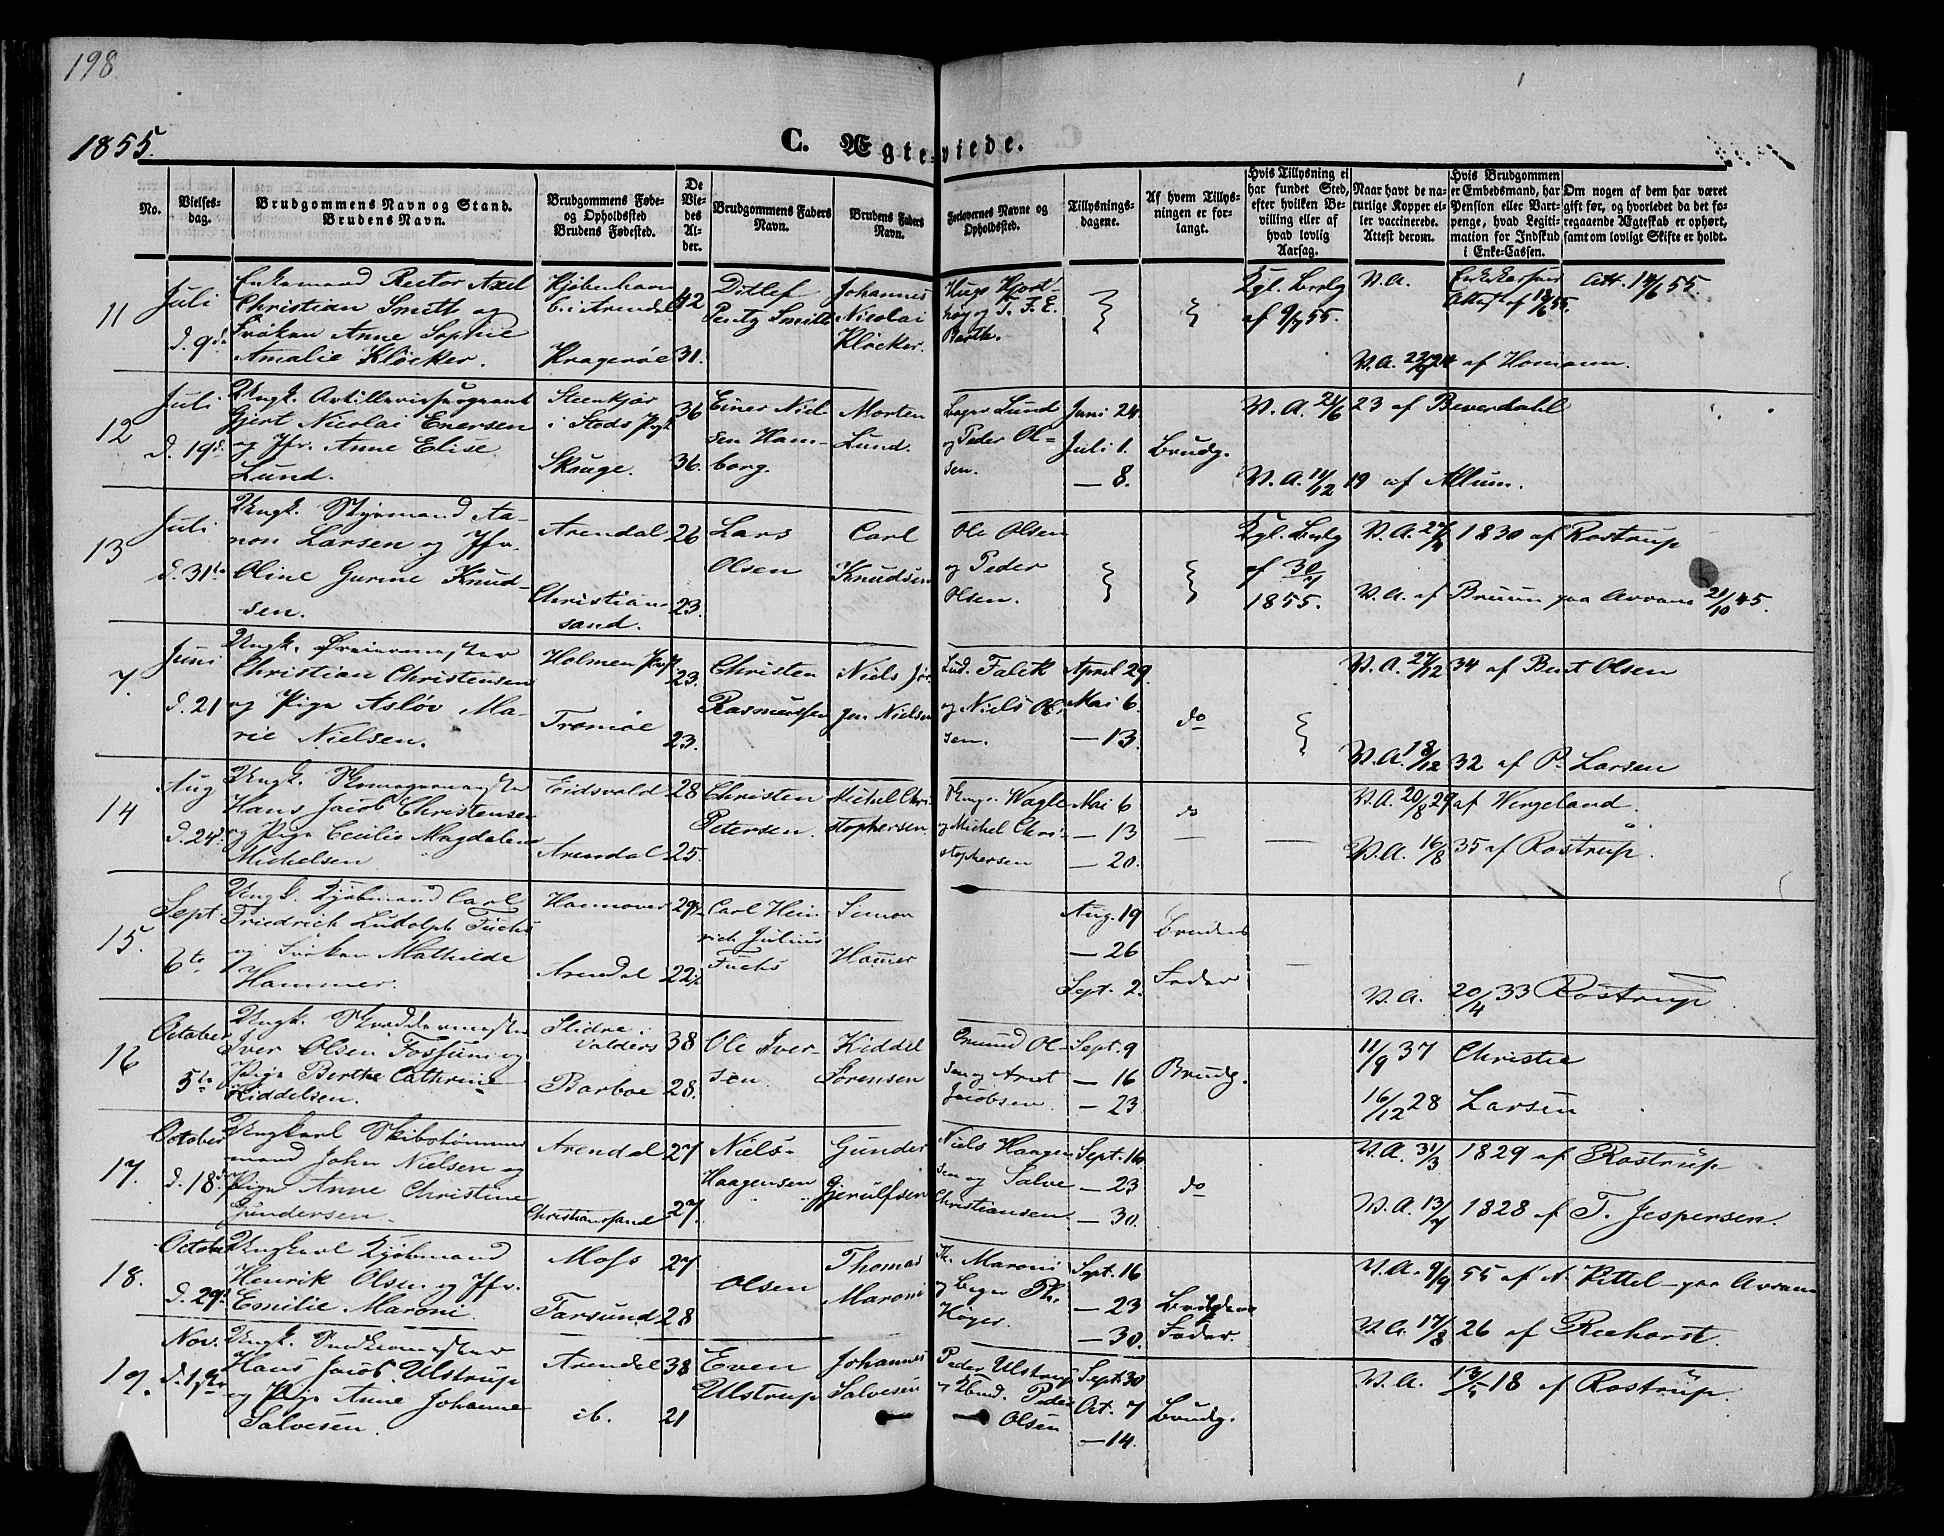 198
1855.
C. Ægteviede.
No.
Vielses-
dag.
Brudgommens Navn og Stand.
Brudens Navn.
Brudgommens Føde-
og Opholdssted
Brudens Fødested.
De
Vie-
des
Al-
der.
Brudgommens Faders
Navn.
Brudens Faders
Navn.
Forlovernes Navne og
Opholdssted.
Tillysnings-
dagene.
Af hvem Tillys-
ningen er for-
langt.
Hvis Tillysning ei
har fundet Sted,
efter hvilken Be-
villing eller af
hvad lovlig
Aarsag.
Naar havt de na-
turlige Kopper el-
ler vaccinerede.
Attest derom.
Hvis Brudgommen
er Embedsmand, har
Pension eller Vart-
penge, hvad Legiti-
mation for Indskud
i Enke-Cassen.
Om nogen af dem har været
gift før, og hvorledet da det fo-
regaaende Ægteskab er ophørt,
samt om lovligt Skifte er holdt.
11
Juli
d. 9de
Enkemand Rector Axel
Christian Smith og
Frøken Anne Sophie
Amalie Kløcker.
Kjøbenhavn
b. i Arendal
Kragerøe
42
31.
Ditlef
Pentz Smith
Johannes
Nicolai
Kløcker.
Hugo Hjort
høy og T. F. E.
Barth.
Kgl. Bevlg
af 9/7 55.
V.A.
V.A. 22/9 24 af Homann.
Enkekasse
Attest af 18/6 55.
Att. 14/6 55.
12
Juli
d. 19d.
Ungk. Artillerisergeant
Gjert Nicolai Enersen
og Jfr. Anne Elise
Lund.
Steenkjær
i Stods Pgt
Skauge.
36
36.
Einer Niel
sen Ham-
borg.
Morten
Lund.
Lund
og Peder Ol-
sen.
Juni 24
Juli 1.
— 8.
Brudg.
V.A. 21/6 23 af Beverdahl
V.A. 11/12 19 af Allum.
13
Juli
d. 31te
Ungk. Styrmand Aa-
non Larsen og Jfr.
Oline Gurine Knud-
sen.
Arendal
Christian
sand.
26
23.
Lars
Olsen
Carl
Knudsen
Ole Olsen
og Peder
Olsen.
Kgl. Bevlg
af 30/7
1855.
V.A. 27/9 1830 af Rostrup
V.A. af Bruun paa Avvans 21/10 45.
7.
Juni
d. 21
Ungk. Dreiermester
Christian Christensen
og Pige Asløv Ma-
rie Nielsen.
Holmen Pgt
Tromøe
23.
23.
Christen
Rasmussen
Niels Jør-
gen Nielsen
Lud. Falck
og Niels Ol-
sen.
April 29.
Mai 6.
— 13.
do
V.A. 27/12 34 af Bent Olsen
V.A. 18/12 32 af P. Larsen
14
Aug
d. 24d.
Ungk. Skomagermester
Hans Jacob Christensen
og Pige Cecilie Magdalene
Michelsen
Eidsvold
Arendal
28
25.
Christen
Petersen.
Michel Chri-
stophersen.
Wagle
og Michel Chri-
stophersen
Mai 6
— 13
— 20.
do
—
—
V.A. 20/8 29 af Wergeland.
V.A. 16/8 35 af Rostrup.
15.
Sept.
6te
Ungk. Kjøbmand Carl
Friedrich Ludolph Fuchs
og Frøken Mathilde
Hammer.
Hannover
Arendal
29½
22½
Carl Hein
rich Julius
Fuchs
Simon
Hamer
Aug. 19
— 26
Sept. 2.
Brudens
Fader
—
V.A. 20/4 33 Rostrup.
16
October
5te
Ungk. Skræddermester
Iver Olsen Fossum og
Pige Berthe Cathrine
Kiddelsen.
Slidre.
Valders
Barboe
38
28.
Ole Iver-
sen.
Kiddel
Sørensen
Gunund Ol-
sen og Arnt
Jacobsen.
Sept. 9
— 16
— 23
Brudg.
11/9 37 Christie
16/12 28 Larsen
17.
October
d. 18de
Ungkarl Skibstømmer
mand John Nielsen og
Pige Anne Christine
Gundersen.
Arendal
Christianssand
27
27.
Niels
Haagensen
Gunder
Gjerulfsen
Niels Haagen
sen og Salve
Christiansen.
Sept. 16
— 23
— 30.
do
V.A. 31/3 1829 af Rostrup
V.A. 13/7 1828 af T. Jespersen.
18.
October
d. 29d.
Ungkarl Kjøbmand
Henrik Olsen og Jfr.
Emilie Maroni.
Moss
Farsund
27
28
Olsen
Thomas
Maroni
Th. Maroni
og Th.
Høyer.
Sept. 16
— 23
— 30.
Brudens
Fader.
V.A. 9/9 55 af A. Kittel paa Avvans
V.A. 17/8 26 af Reehorst.
19.
Nov.
d. 1ste
Ungk. Snedkermester
Hans Jacob Ulstrup
og Pige Anne Johanne
Salvesen.
Arendal
ib.
38
21
Even
Ulstrup
Johannes
Salvesen
Peder Ulstrup
Peder
Olsen
Sept. 30
Oct. 7
— 14.
Brudg.
V.A. 13/5 18 af Rostrup.